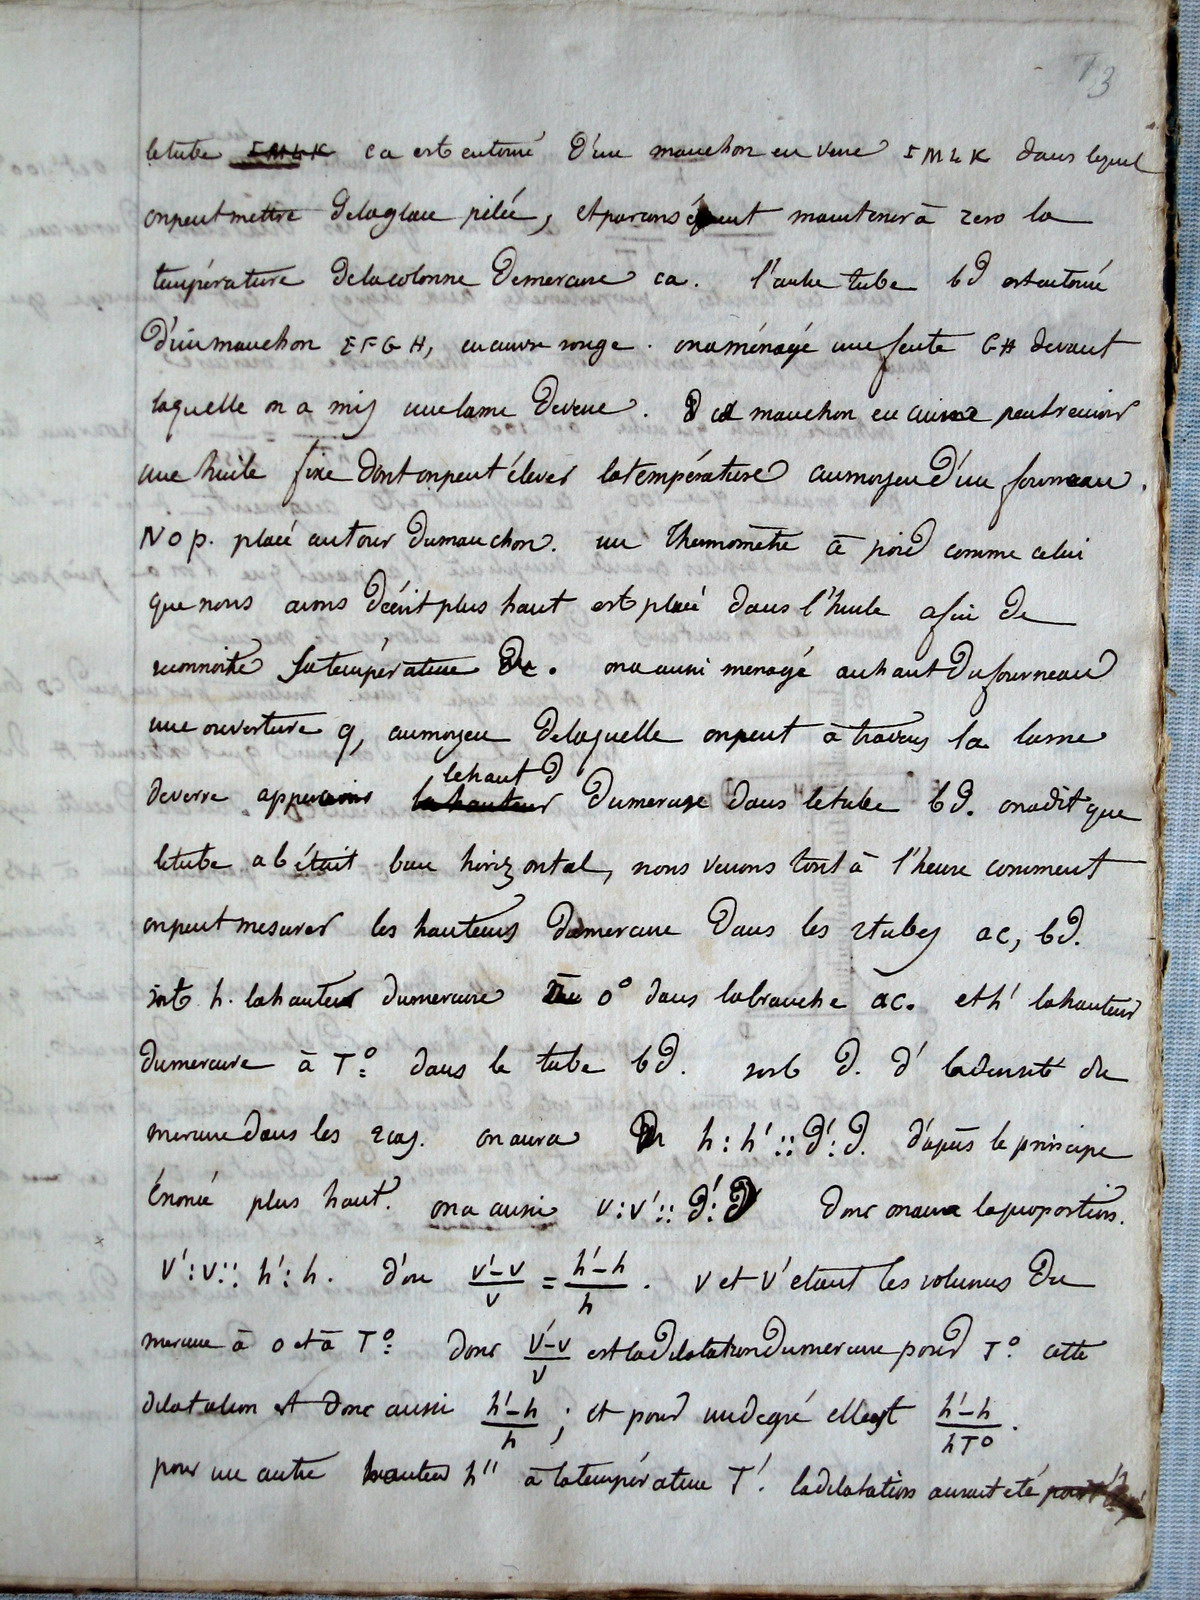 73
le tube ca est entouré d'un manchon en verre IMLK dans lequel
on peut mettre de la glace pilée, et par conséquent maintenir à zero la
température de la colonne de mercure ca. l'autre tube bd est entouré
d'un manchon EFGH, en cuivre rouge. on a ménagé une fente GH devant
laquelle on a mis une lame de verre. manchon en cuivre peut recevoir
une huile fixe dont on peut élever la température au moyen d'un fourneau.
NOP. placé autour du manchon. un thermomètre à poid comme celui
que nous avons décrit plus haut est placé dans l'huile afin de
reconnoitre sa température. on a aussi menagé au haut du fourneau
une ouverture q, au moyen de laquelle on peut à travers la lame
le haut d
de verre appercevoir la hauteur du mercure dans le tube bd. on a dit que
le tube ab était bien horizontal, nous verrons tout à l'heure comment
on peut mesurer les hauteurs du mercure dans les 2 tubes ac, bd.
soit h. la hauteur du mercure 0° dans la branche ac. et h' la hauteur
du mercure à T° dans le tube bd. soit d. d' la densité du
mercure dans les 2 cas. on aura h : h' :: d' : d. d'après le principe
énoncé plus haut. on a aussi v : v' :: d' : d donc on aura la proportion.
v' : v :: h' : h. d'ou v'-v/v = h'-h/h. v et v' etant les volumes du
mercure à 0 et à T° donc v'-v/v est la dilatation du mercure pour T° cette
dilatation est donc aussi h'-h/h ; et pour un degré elle est h'-h/hT°.
pour un autre hauteur h'' à la température T'. la dilatation aurait été